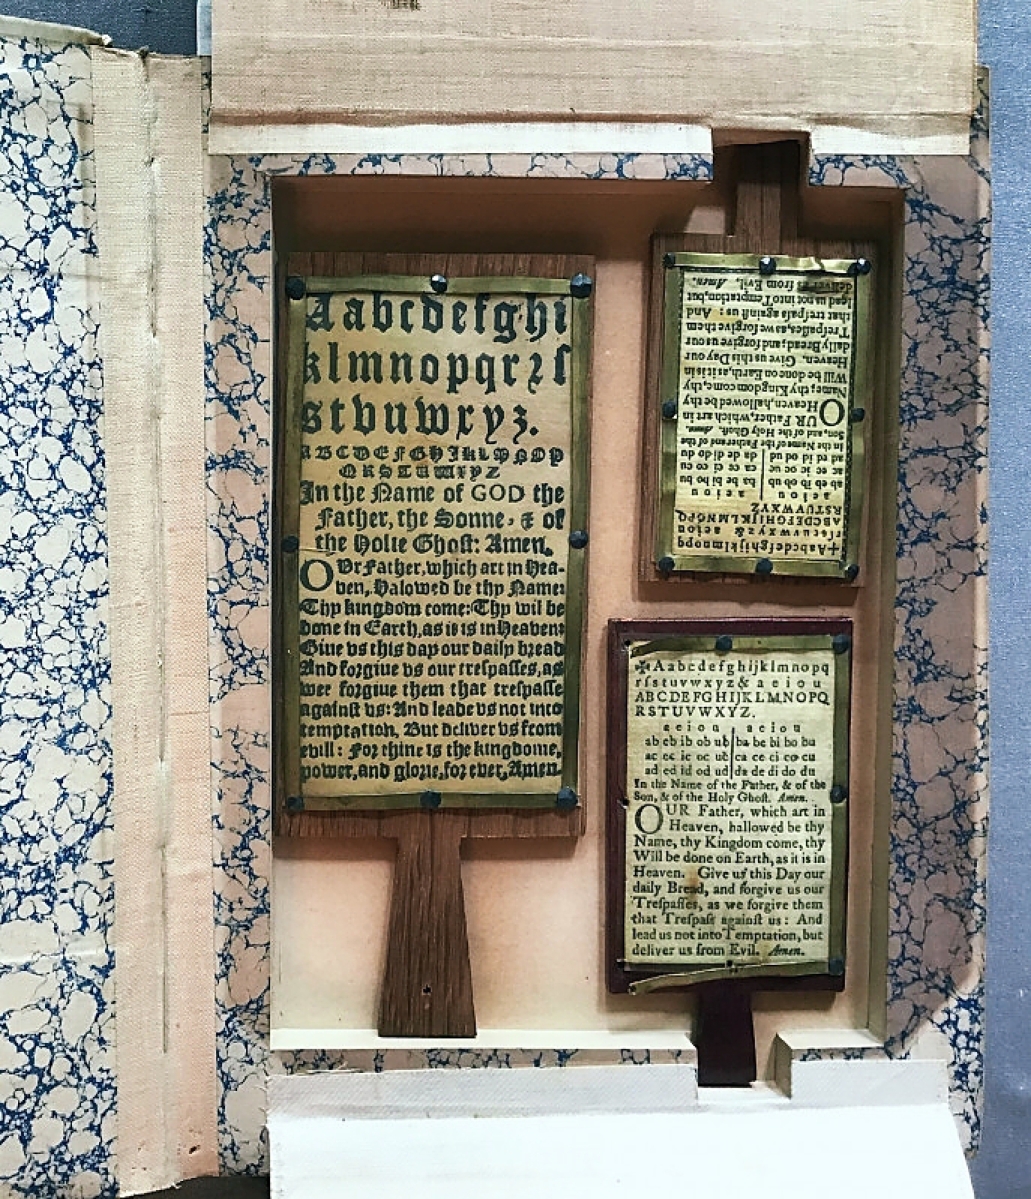 Aabcdefghi
klmnopqrꝛſ
stvuwxyz.
ABCDEFGHIKLMNOP
QRSTUWXYZ
In the Name of GOD the
Father, the Sonne, & of
the Holie Ghoſt: Amen.
OUr Father, which art in Hea-
ven, Halowed be thy Name:
Thy kingdom come: Thy wil be
done in Earth, as it is in Heaven:
Giue vs this day our daily bread
And forgiue vs our treſpaſſes, as
wee forgiue them that treſpaſſe
againſt vs: And leade vs not into
temptation, But deliver vs from
evill: For thine is the kingdome,
power, and glorie, for ever, Amen.
+Aabcdefghijklmnopq
rſstuvwxyz & aeiou
ABCDEFGHIJKLMNOPQ
RSTUVWXYZ
a e i o u | a e i o u
ab eb ib ob ub | ba be bi bo bu
ac ec ic oc uc | ca ce ci co cu
ad ed id od ud | da de di do du
In the Name of the Father and of the
Son, and of the Holy Ghoſt. Amen.
OUR Father, which art in
Heaven, hallowed be thy
Name; thy Kingdom come, thy
Will be done on Earth, as it is in
Heaven. Give us this Day our
daily Bread; and forgive us our
Treſpaſſes, as we forgive them
that treſpaſs againſt us: And
lead us not into Temptation, but
deliver us from Evil. Amen.
✠Aabcdefghijklmnopq
rſstuvwxyz& a e i o u
ABCDEFGHIJKLMNOPQ
RSTUVWXYZ.
a e i o u | a e i o u
ab eb ib ob ub | ba be bi bo bu
ac ec ic oc uc | ca ce ci co cu
ad ed id od ud | da de di do du
In the Name of the Father, & of the
Son, & of the Holy Ghoſt. Amen.
OUR Father, which art in
Heaven, hallowed be thy
Name, thy Kingdom come, thy
Will be done on Earth, as it is in
Heaven. Give us this Day our
daily Bread, and forgive us our
Treſpaſſes, as we forgive them
that Treſpaſs againſt us: And
lead us not into Temptation, but
deliver us from Evil. Amen.